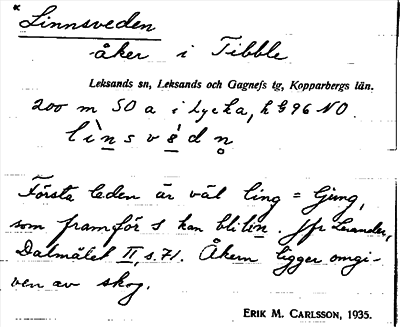 Linnsveden
åker i Tibble
Leksands sn, Leksands och Gagnefs tg, Kopparbergs län.
200 m SO a i Lycka, k § 96 NO.
lìnsvédn̥
Första leden är väl ling = ljung,
som framför s kan bli lin. Jfr Levander,
Dalmålet II, s. 71. Åkern ligger omgi-
ven av skog.
ERIK M. CARLSSON, 1935.